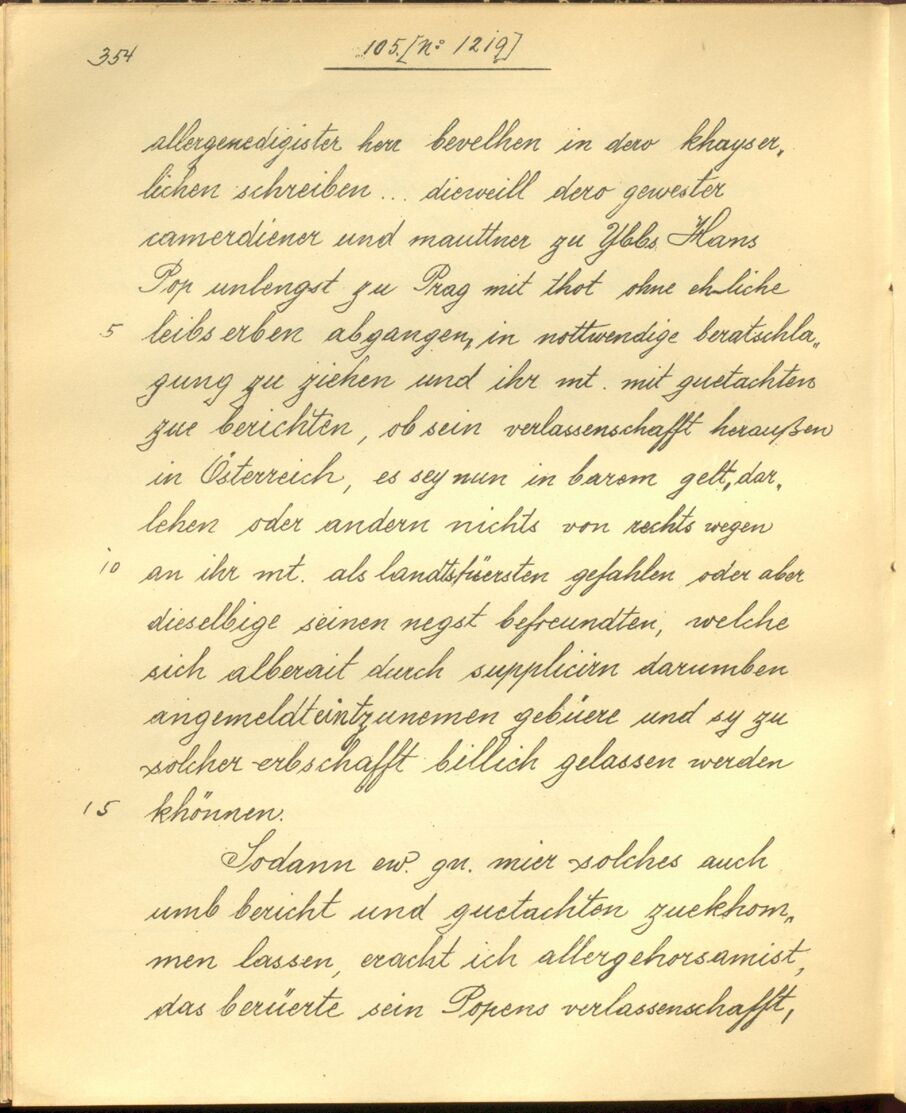 354
105. [No 1219]
allergenedigister herr bevelhen in dero khayser„
lichen schreiben ... dieweill dero gewester
camerdiener und mauttner zu Ybbs Hans
Pop unlengst zu Prag mit thot ohne ehliche
5 leibserben abgangen, in nottwendige beratschla„
gung zu ziehen und ihr mt. mit guetachten
zue berichten, ob sein verlassenschafft heraußen
in Österreich, es sey nun in barem gelt, dar„
lehen oder andern nichts von rechts wegen
10 an ihr mt. als landtsfüersten gefahlen oder aber
dieselbige seinen negst befreundten, welche
sich alberait durch supplicirn darumben
angemeldt eintzunemen gebüere und sy zu
solcher erbschafft billich gelassen werden
15 khönnen.
Sodann ew. gn. mier solches auch
umb bericht und guetachten zuekhom„
men lassen, eracht ich allergehorsamist,
das berüerte sein Popens verlassenschafft,